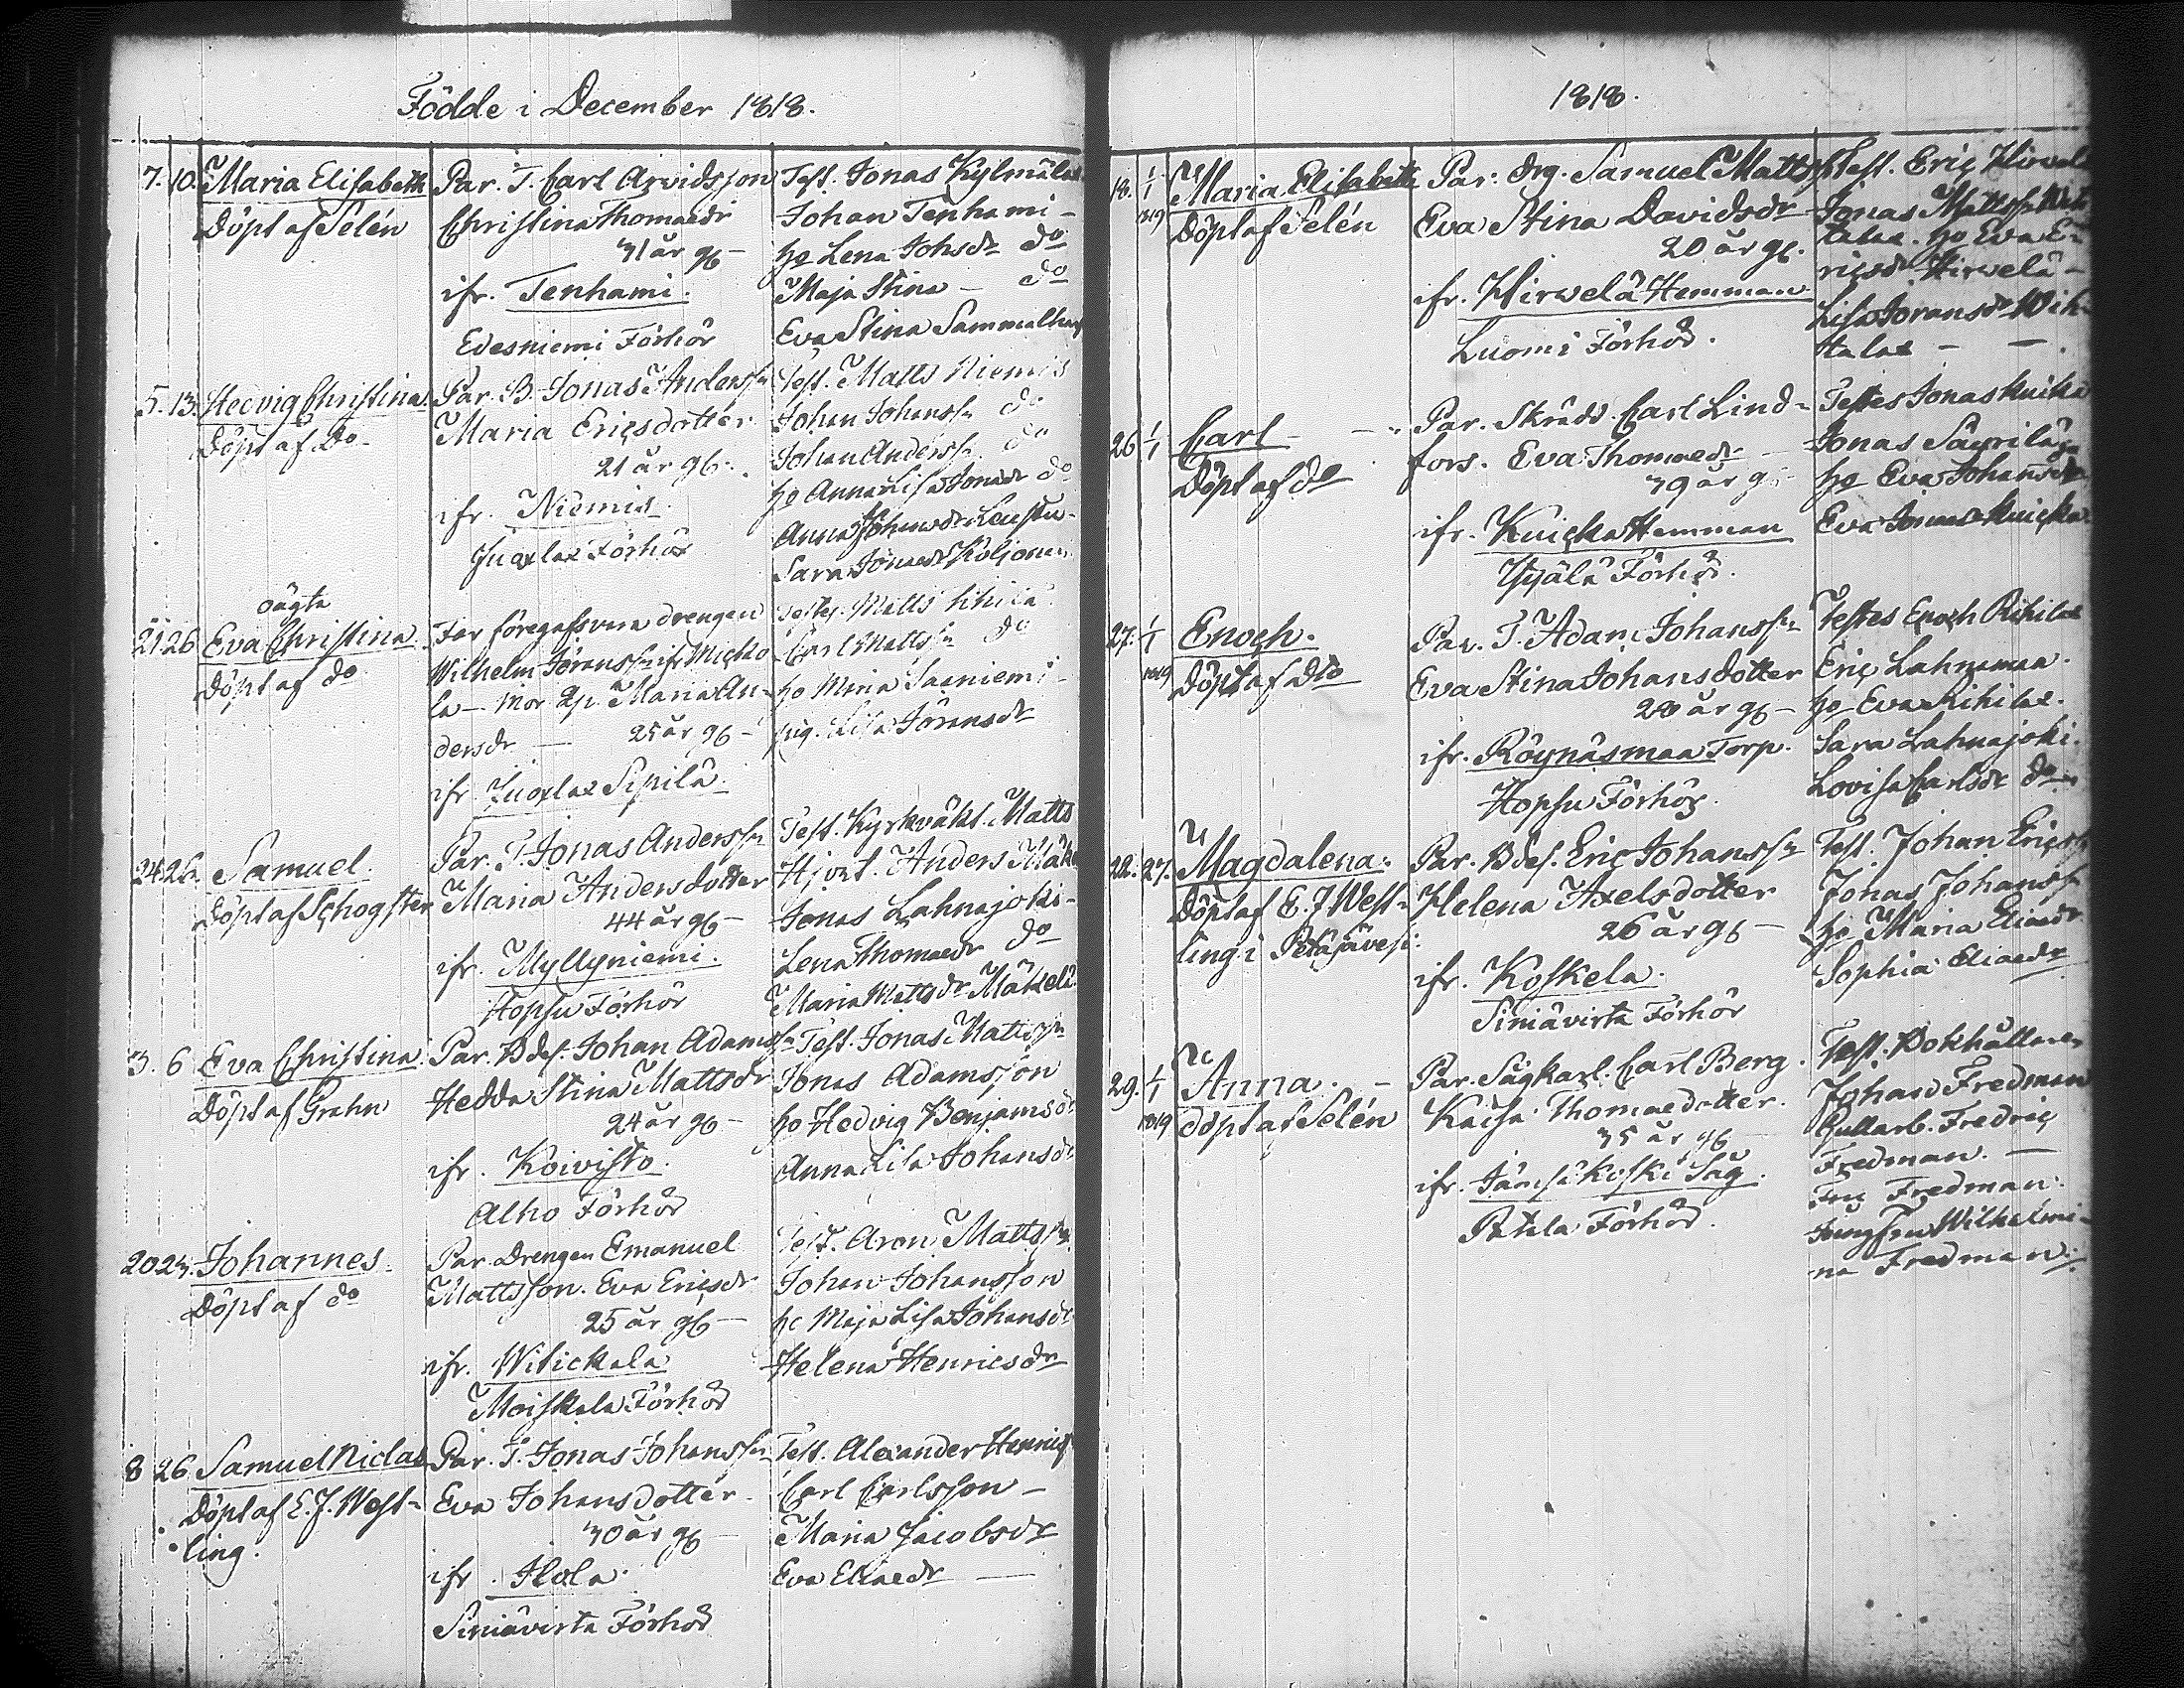 Födde i December 1818.
7. 10. Maria Elisabeth
Döpt af Selén
Par. T. Carl Arvidsson
Christina Thomaedr
31 år g6 –
ifr. Tenhami.
Edesniemi Förhör
Test. Jonas Kylmälax
Johan Tenhami –
ho Lena Johsdr do
Maja Stina – do
Eva Stina
5. 13. Hedvig Christina.
Döpt af Do
Par. B. Jonas Anderssn
Maria Ericsdotter
21 år g6.
ifr. Niemis
Juoxlax Förhör
Test. Matts Niemis
Johan Johanssn do
Johan Anderssn do
ho Anna Lisa Jonaedr do
Anna Johansdr
Sara Jonaedr Koljonen
oägta
21. 26 Eva Christina
Döpt af do
Far föregifves vara drengen
Wilhelm Göranssn ifr Micko
la – Mor Qp. Maria An-
dersdr – 25 år g6 –
ifr Juoxlax Sipilä.
Testes. Matts
Carl Mattssn do
ho Mina Saaniemi –
pig. Lisa Göransdr
24. 26. Samuel.
Döpt af Schogster
Par. T. Jonas Anderssn
Maria Andersdotter
44 år g6 –
ifr. Myllyniemi.
Hopsu Förhör
Test. Kyrkväkt. Matts
Hjort. Anders Mäke
Jonas Lahnajoki –
Lena Thomaedr do
Maria Mattsdr Mäkelä
3. 6 Eva Christina
Döpt af Grahn
Par. Bdes. Johan Adamssn
Hedda Stina Mattsdr
24 år g6 –
ifr. Koivisto.
Alho Förhör
Test. Jonas Mattssn
Jonas Adamsson
ho Hedvig Benjamsdr
Anna Lisa Johansdr
20 27. Johannes.
Döpt af do
Par. Drengen Emanuel
Mattsson. Eva Ericsdr
25 år g6 –
ifr. Witickala
Moiskala Förhör
Test. Aron Mattssn
Johan Johansson
ho Maja Lisa Johansdr
Helena Henricsdr
8 26 Samuel Niclas
Döpt af E. J. West-
ling.
Par. T. Jonas Johanssn
Eva Johansdotter.
30 år g6 –
ifr. Ilola.
Siniävirta Förhör
Test. Alexander Henricss
Carl Carlsson –
Maria Jacobsdr
Eva Eliaedr –
1818.
18. 1/1 1819 Maria Elisabeth
Döpt af Selén
Par. drg. Samuel Mattssn
Eva Stina Davidsdr
20 år g6.
ifr. Hirvelä Hemman
Luomi Förhör.
Test. Eric Hirvelä
Jonas Mattssn Wih
talax. ho Eva E-
ricsdr Hirvelä –
Lisa Göransdr Wih-
talax – –
26 1/1 Carl – –
Döpt af do
Par. Skrädd. Carl Lind-
fors. Eva Thomaedr –
39 år g6
ifr. Kuicka Hemman
Hyälä Förhör.
Testes Jonas Kuicka
Jonas
ho Eva Johansdr
Eva Jonaedr Kuicka
27. 1/1 1819 Enoch.
Döpt af Dto
Par. T. Adam Johanssn
Eva Stina Johansdotter
28 år g6 –
ifr. Röynäsmaa Torp.
Hopsu Förhör.
Testes Enoch Rihilax
Eric Lahnamaa.
ho Eva Rihilax.
Sara Lahnajoki.
Lovisa Carlsdr do
22. 27. Magdalena.
Döpt af E. J West-
ling i Petäjävesi.
Par. Bdes. Eric Johanssn
Helena Axelsdotter
26 år g6 –
ifr. Koskela.
Siniävirta Förhör
Test. Johan Ericssn
Jonas Johanssn
ho Maria Eliaedr
Sophia Eliaedr
29. 1/1 1819 Anna. –
döpt af Selén
Par. Sågkarl. Carl Berg.
Kaisa Thomaedotter.
35 år g6
ifr. Jämsänkoski Såg.
Patala Förhör.
Test: Bokhållaren
Johan Fredman
Gullarb. Fredric
Fredman. –
Fru Fredman.
Jungfru Wilhelmi-
na Fredman.